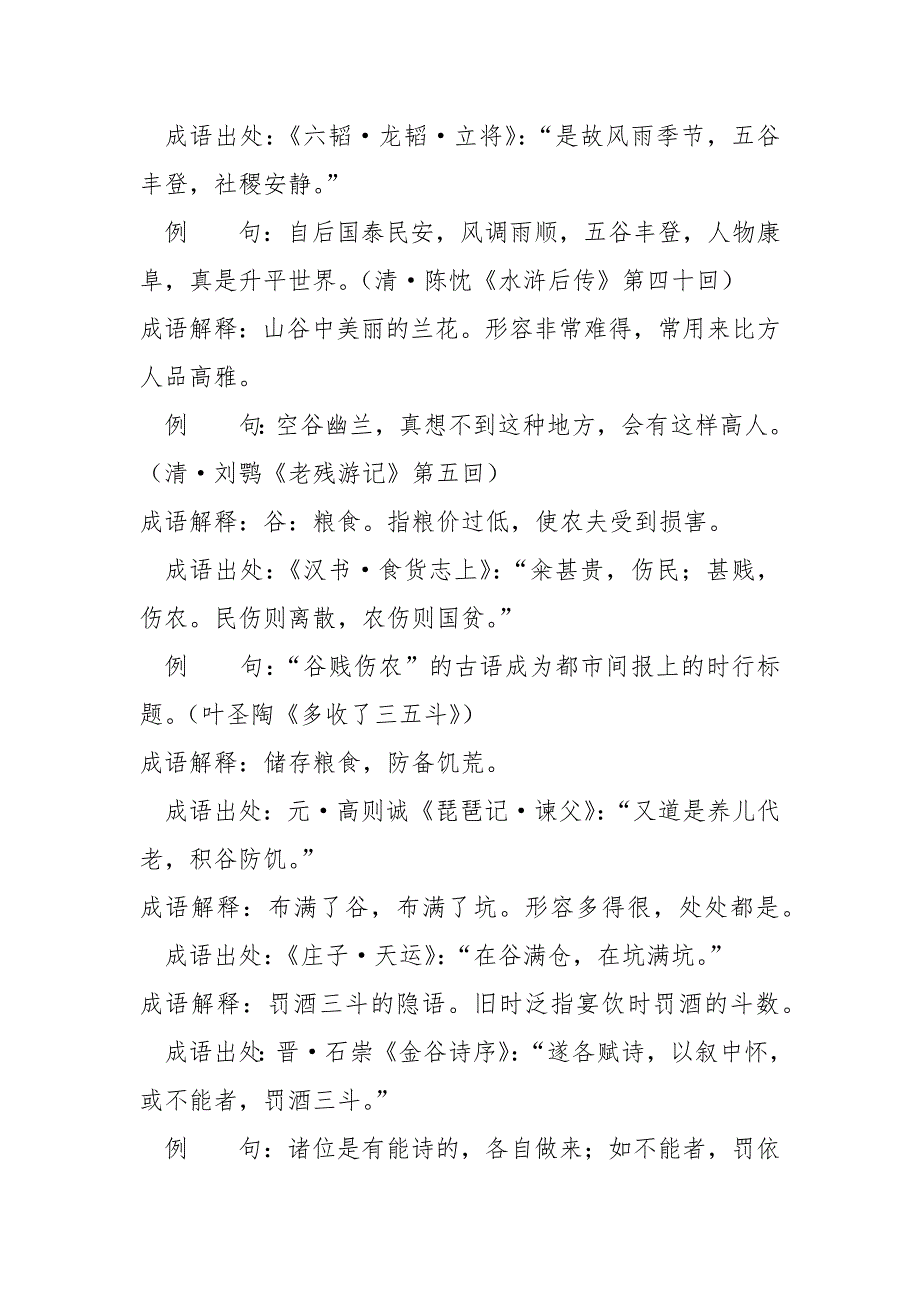 成语出处：《六韬·龙韬·立将》：“是故风雨季节，五谷
丰登，社稷安静。”
例　　句：自后国泰民安，风调雨顺，五谷丰登，人物康
阜，真是升平世界。（清·陈忱《水浒后传》第四十回）
成语解释：山谷中美丽的兰花。形容非常难得，常用来比方
人品高雅。
例　　句：空谷幽兰，真想不到这种地方，会有这样高人。
（清·刘鹗《老残游记》第五回）
成语解释：谷：粮食。指粮价过低，使农夫受到损害。
成语出处：《汉书·食货志上》：“籴甚贵，伤民；甚贱，
伤农。民伤则离散，农伤则国贫。”
例　　句：“谷贱伤农”的古语成为都市间报上的时行标
题。（叶圣陶《多收了三五斗》）
成语解释：储存粮食，防备饥荒。
成语出处：元·高则诚《琵琶记·谏父》：“又道是养儿代
老，积谷防饥。”
成语解释：布满了谷，布满了坑。形容多得很，处处都是。
成语出处：《庄子·天运》：“在谷满仓，在坑满坑。”
成语解释：罚酒三斗的隐语。旧时泛指宴饮时罚酒的斗数。
成语出处：晋·石崇《金谷诗序》：“遂各赋诗，以叙中怀，
或不能者，罚酒三斗。”
例　　句：诸位是有能诗的，各自做来；如不能者，罚依